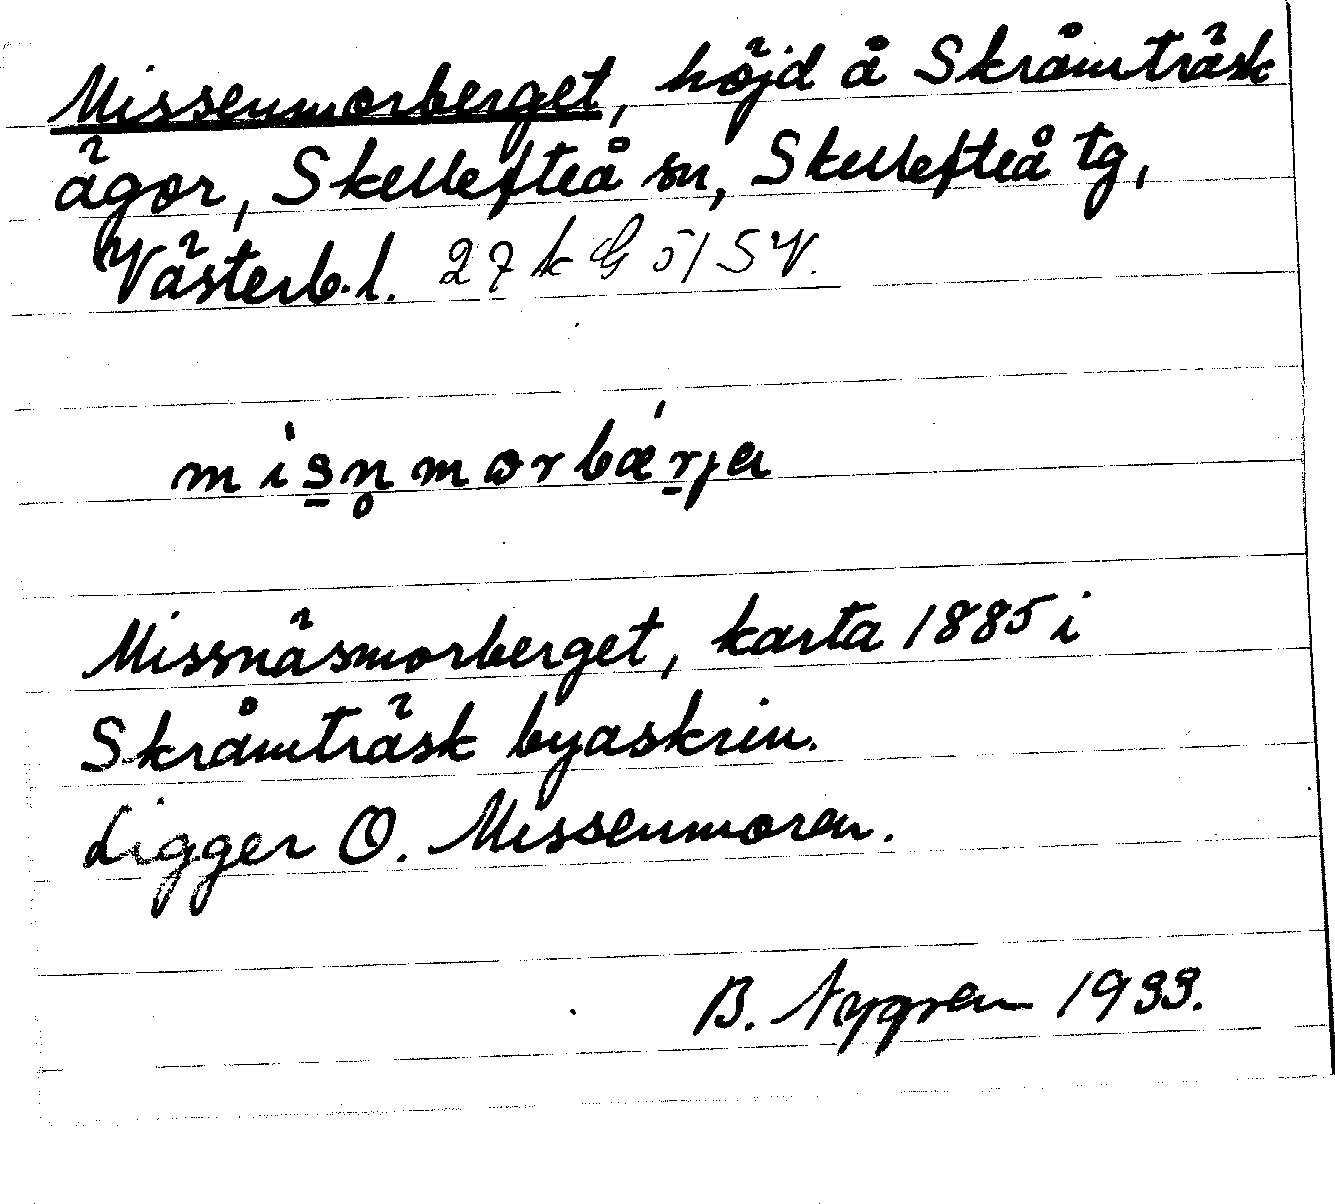 Missenmorberget, höjd å Skråmträsk
ägor, Skellefteå sn, Skellefteå tg,
Västerb.l. 27 k G 5/ SV.
mi´s̲n̥morbæ´r̲ja
Missnäsmorberget, karta 1885 i
Skråmträsk byaskrin.
Ligger O. Missenmoren.
B. Nygren 1933.